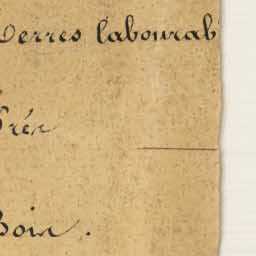 Terres labourab
Prés
Bois.